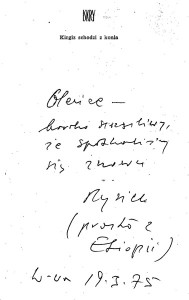 Kirgiz schodzi z konia
Olence —
bardzo szczęśliwy,
że spotkaliśmy
się znowu
Rysiek
(prosto z
Etiopii)
W-wa 19.3.75